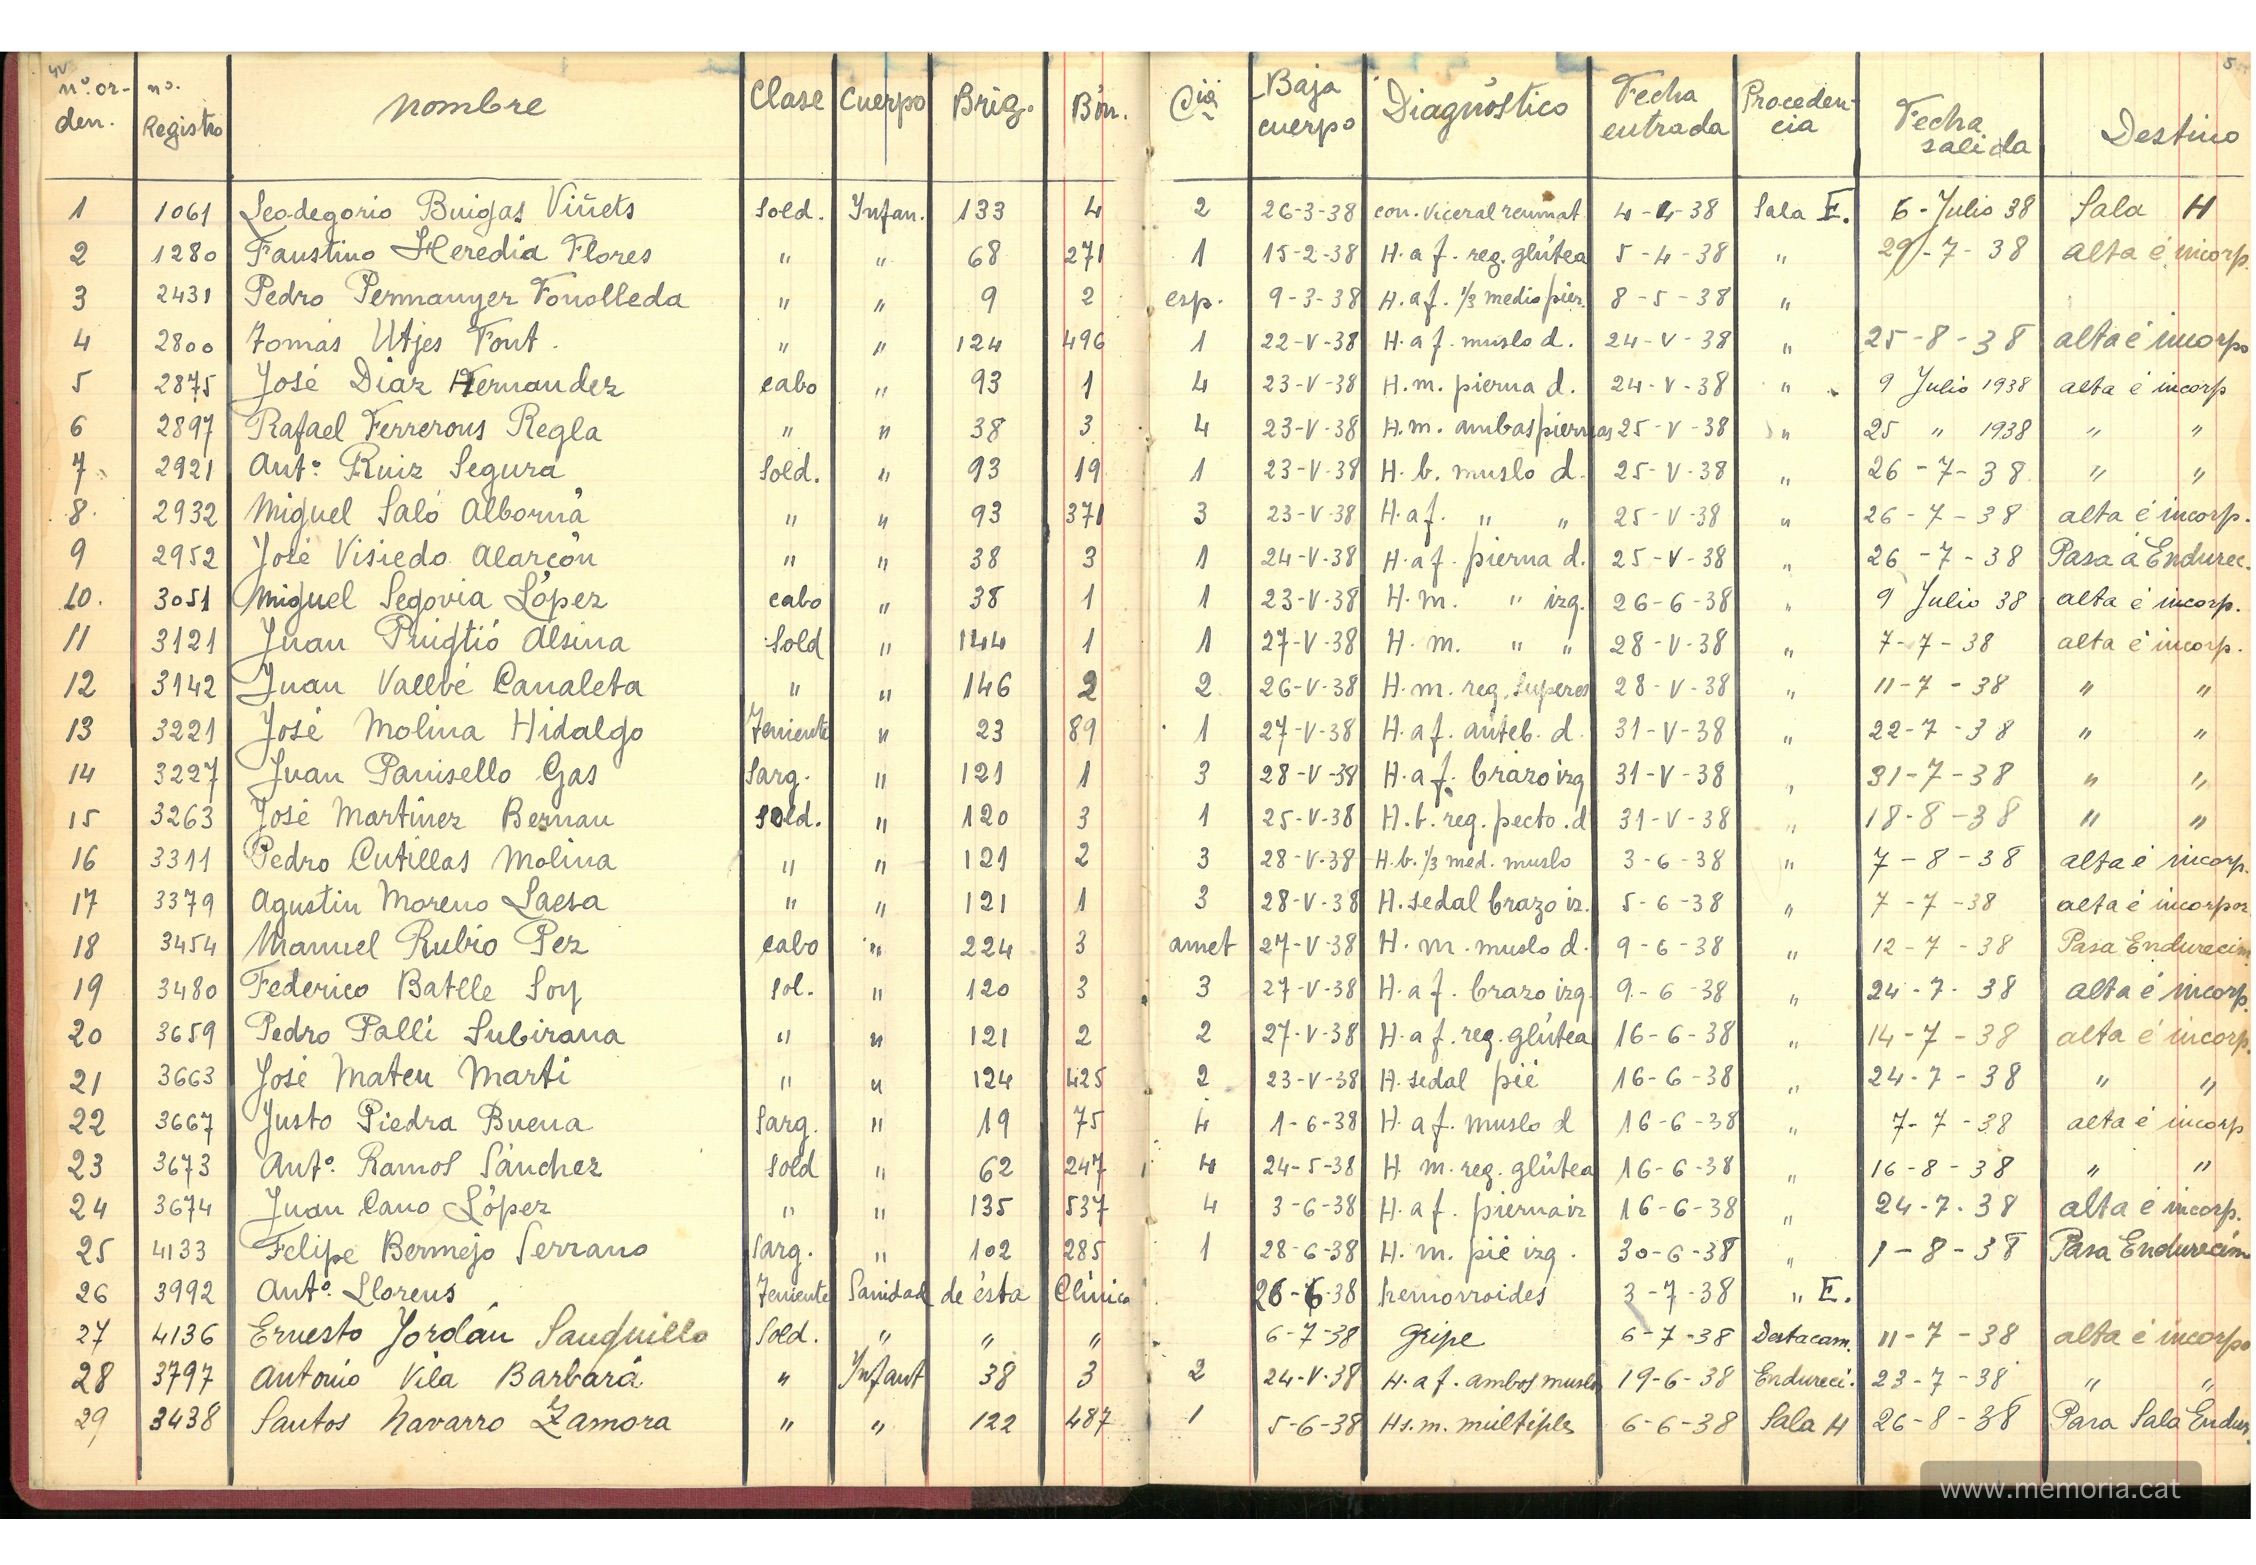 4v 5
nº. or-den. nº. Registro nombre Clase Cuerpo Brig. Bón. Cíª Baja cuerpo Diagnóstico Fecha entrada Proceden-cia Fecha salida Destino
1 1061 Leodegorio Buigas Viñets Sold. Infan. 133 4 2 26-3-38 con. viceral reumat 4-4-38 Sala E. 6-Julio 38 Sala H
2 1280 Faustino Heredia Flores " " 68 271 1 15-2-38 H. a f. reg. glútea 5-4-38 " 29-7-38 alta é incorp.
3 2431 Pedro Permanyer Fonolleda " " 9 2 esp. 9-3-38 H. a f. 1/3 medio pier. 8-5-38 "
4 2800 Tomás Utjes Font. " " 124 496 1 22-V-38 H. a f. muslo d. 24-V-38 " 25-8-38 alta é incorpo
5 2875 José Diaz Hernandez cabo " 93 1 4 23-V-38 H. m. pierna d. 24-V-38 " 9 Julio 1938 alta é incorp
6 2897 Rafael Ferrerous Regla " " 38 3 4 23-V-38 H. m. ambas piernas 25-V-38 " 25 " 1938 " "
7 2921 Antº. Ruiz Segura Sold. " 93 19 1 23-V-38 H. b. muslo d. 25-V-38 " 26-7-38 " "
8. 2932 Miguel Saló Alborná " " 93 371 3 23-V-38 H. a f. " " 25-V-38 " 26-7-38 alta é incorp.
9 2952 José Visiedo Alarcón " " 38 3 1 24-V-38 H. a f. pierna d. 25-V-38 " 26-7-38 Pasa á Endurec.
10. 3051 Miguel Segovia López cabo " 38 1 1 23-V-38 H. m. " izq. 26-6-38 " 9 Julio 38 alta é incorp.
11 3121 Juan Puigtió Alsina Sold " 144 1 1 27-V-38 H. m. " " 28-V-38 " 7-7-38 alta é incorp.
12 3142 Juan Vallvé Canaleta " " 146 2 2 26-V-38 H. m. reg. superes 28-V-38 " 11-7-38 " "
13 3221 José Molina Hidalgo Teniente " 23 89 1 27-V-38 H. a f. anteb. d. 31-V-38 " 22-7-38 " "
14 3227 Juan Panisello Gas Sarg. " 121 1 3 28-V-38 H. a f. brazo izq 31-V-38 " 31-7-38 " "
15 3263 José Martínez Bernau Sold. " 120 3 1 25-V-38 H. b. reg. pecto. d 31-V-38 " 18-8-38 " "
16 3311 Pedro Cutillas Molina " " 121 2 3 28-V-38 H. b. 1/3 med. muslo 3-6-38 " 7-8-38 alta é incorp.
17 3379 Agustin Moreno Laesa " " 121 1 3 28-V-38 H. sedal brazo iz. 5-6-38 " 7-7-38 alta é incorpor
18 3454 Manuel Rubio Pez cabo " 224 3 amet 27-V-38 H. m. muslo d. 9-6-38 " 12-7-38 Pasa Endurecim
19 3480 Federico Batlle Soy sol. " 120 3 3 27-V-38 H. a f. brazo izq. 9-6-38 " 24-7-38 alta é incorp.
20 3659 Pedro Pallí Subirana " " 121 2 2 27-V-38 H. a f. reg. glútea 16-6-38 " 14-7-38 alta é incorp.
21 3663 José Mateu Martí " " 124 425 2 23-V-38 H. sedal pié 16-6-38 " 24-7-38 " "
22 3667 Justo Piedra Buena Sarg. " 19 75 4 1-6-38 H. a f. muslo d 16-6-38 " 7-7-38 alta é incorp
23 3673 Antº. Ramos Sánchez Sold " 62 247 4 24-5-38 H m. reg. glútea 16-6-38 " 16-8-38 " "
24 3674 Juan Cano López " " 135 537 4 3-6-38 H. a f. pierna iz 16-6-38 " 24-7-38 alta é incorp.
25 4133 Felipe Bermejo Serrano Sarg. " 102 285 1 28-6-38 H. m. pié izq. 30-6-38 " 1-8-38 Pasa Endurecim
26 3992 Antº. Llorens Teniente Sanidad de ésta Clínica 26-6-38 hemorroides 3-7-38 " E.
27 4136 Ernesto Jordán Sanguillo Sold. " " " 6-7-38 Gripe 6-7-38 Destacam. 11-7-38 alta é incorpo
28 3797 Antonio Vila Barbará " Infant 38 3 2 24-V-38 H. a f. ambos muslos 19-6-38 Endureci. 23-7-38 " "
29 3438 Santos Navarro Zamora " " 122 487 1 5-6-38 Hs. m. múltiples 6-6-38 Sala H 26-8-38 Pasa Sala Endur.
www.memoria.cat